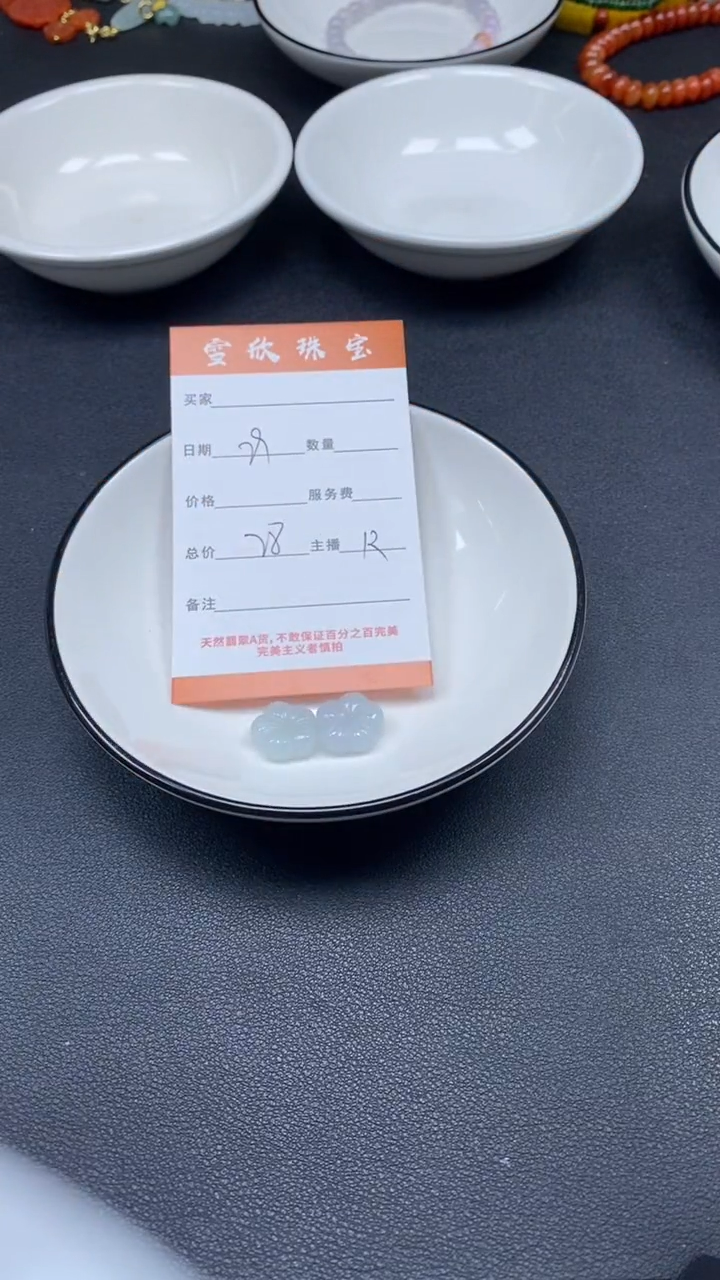 雪欣珠宝
买家
日期 29 数量
价格 服务费
总价 28 主播 12
备注
天然翡翠A货,不敢保证百分之百完美
完美主义者慎拍